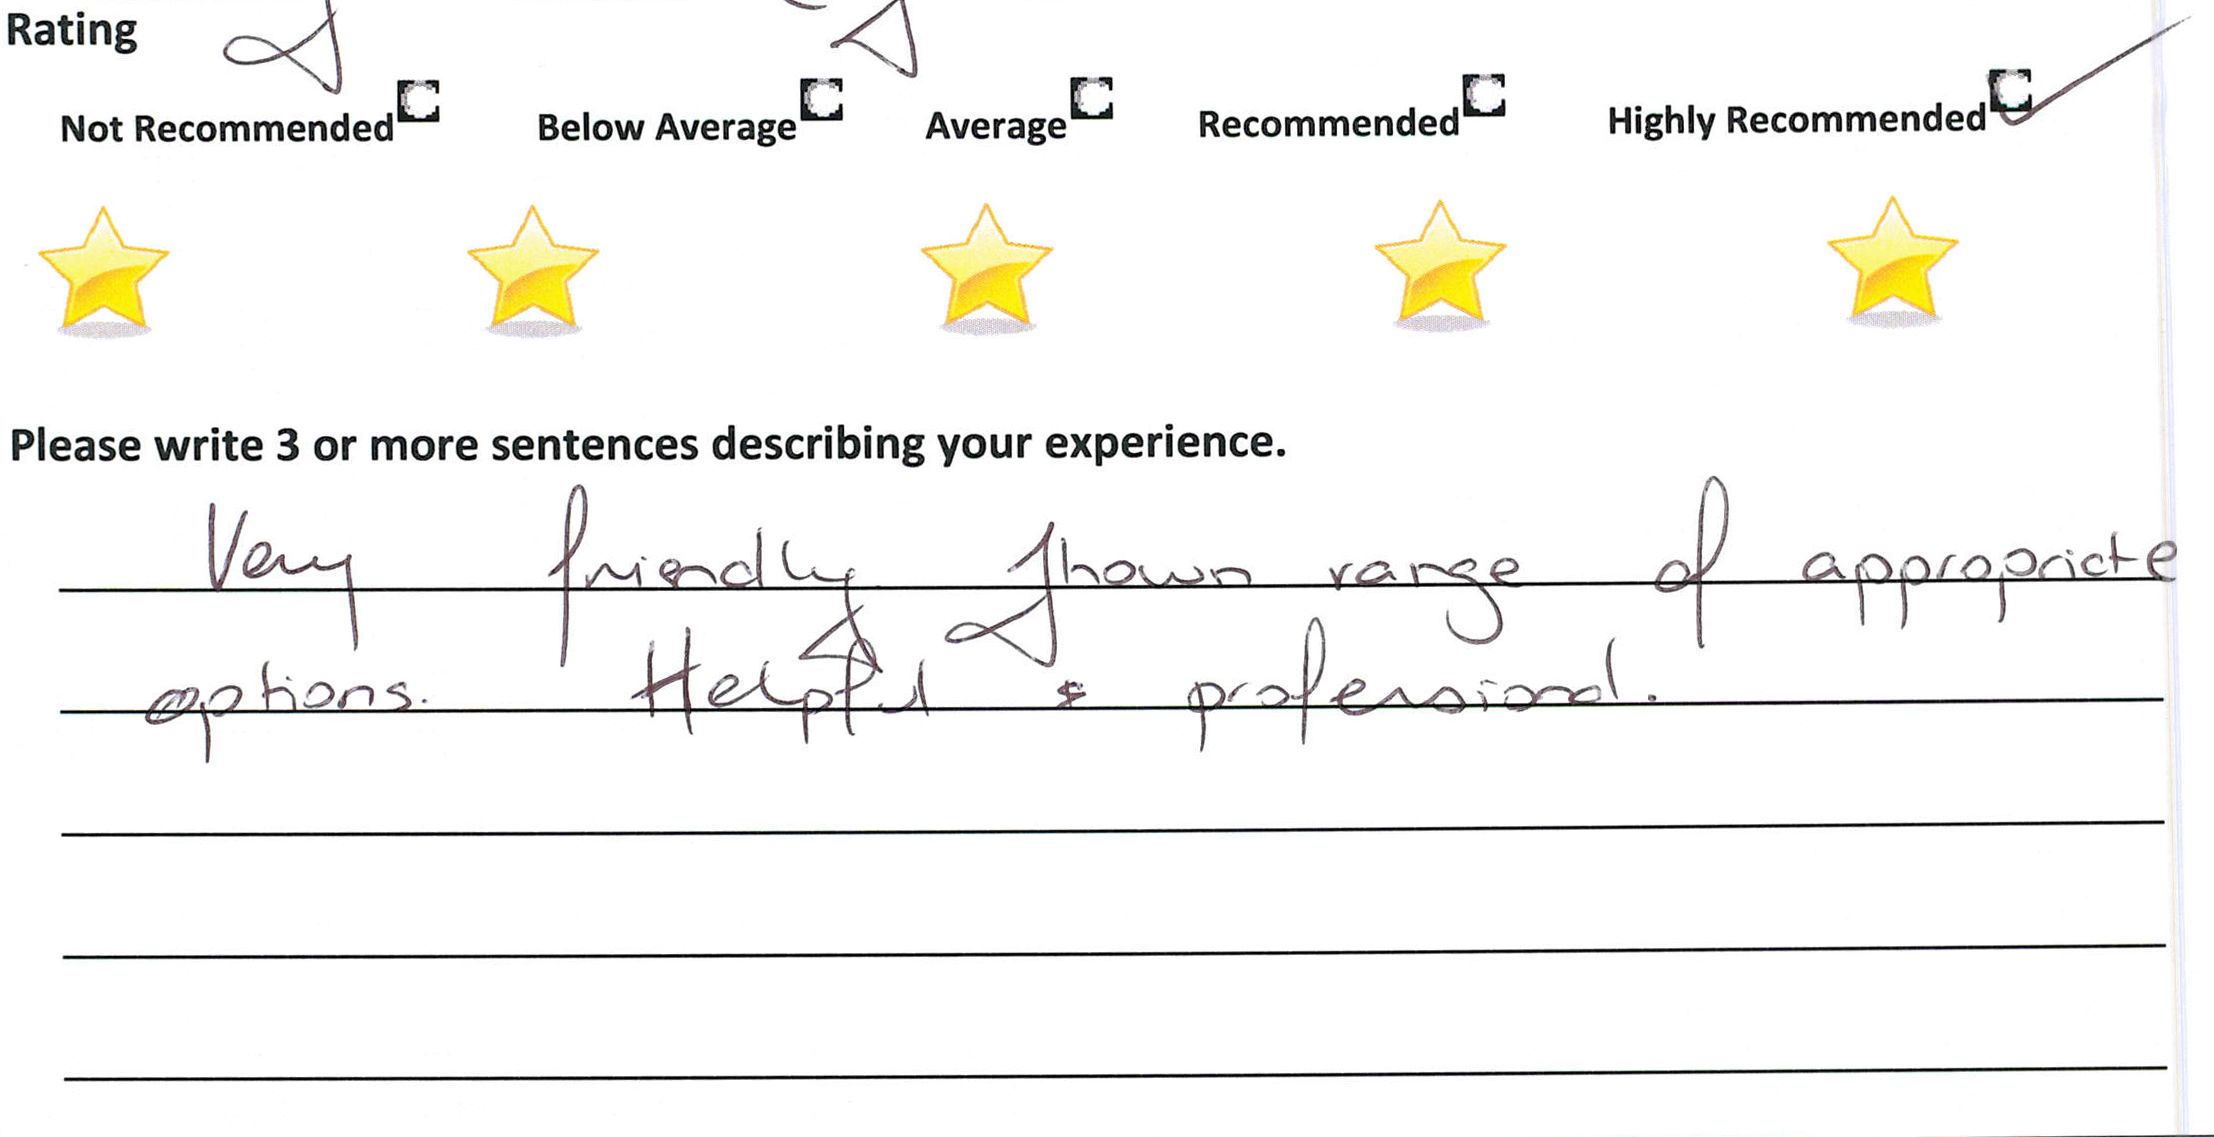 Rating
Not Recommended Below Average Average Recommended Highly Recommended
Please write 3 or more sentences describing your experience.
Very friendly Shown range of appropriate
options. Helpful & professional.